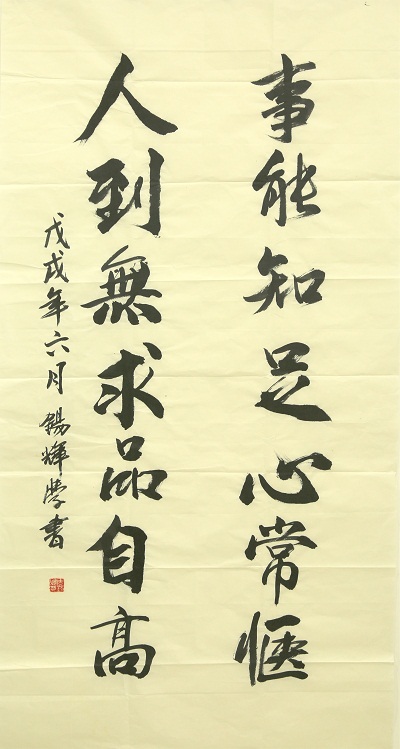 事能知足心常惬
人到無求品自高
戊戌年六月 錫輝學書